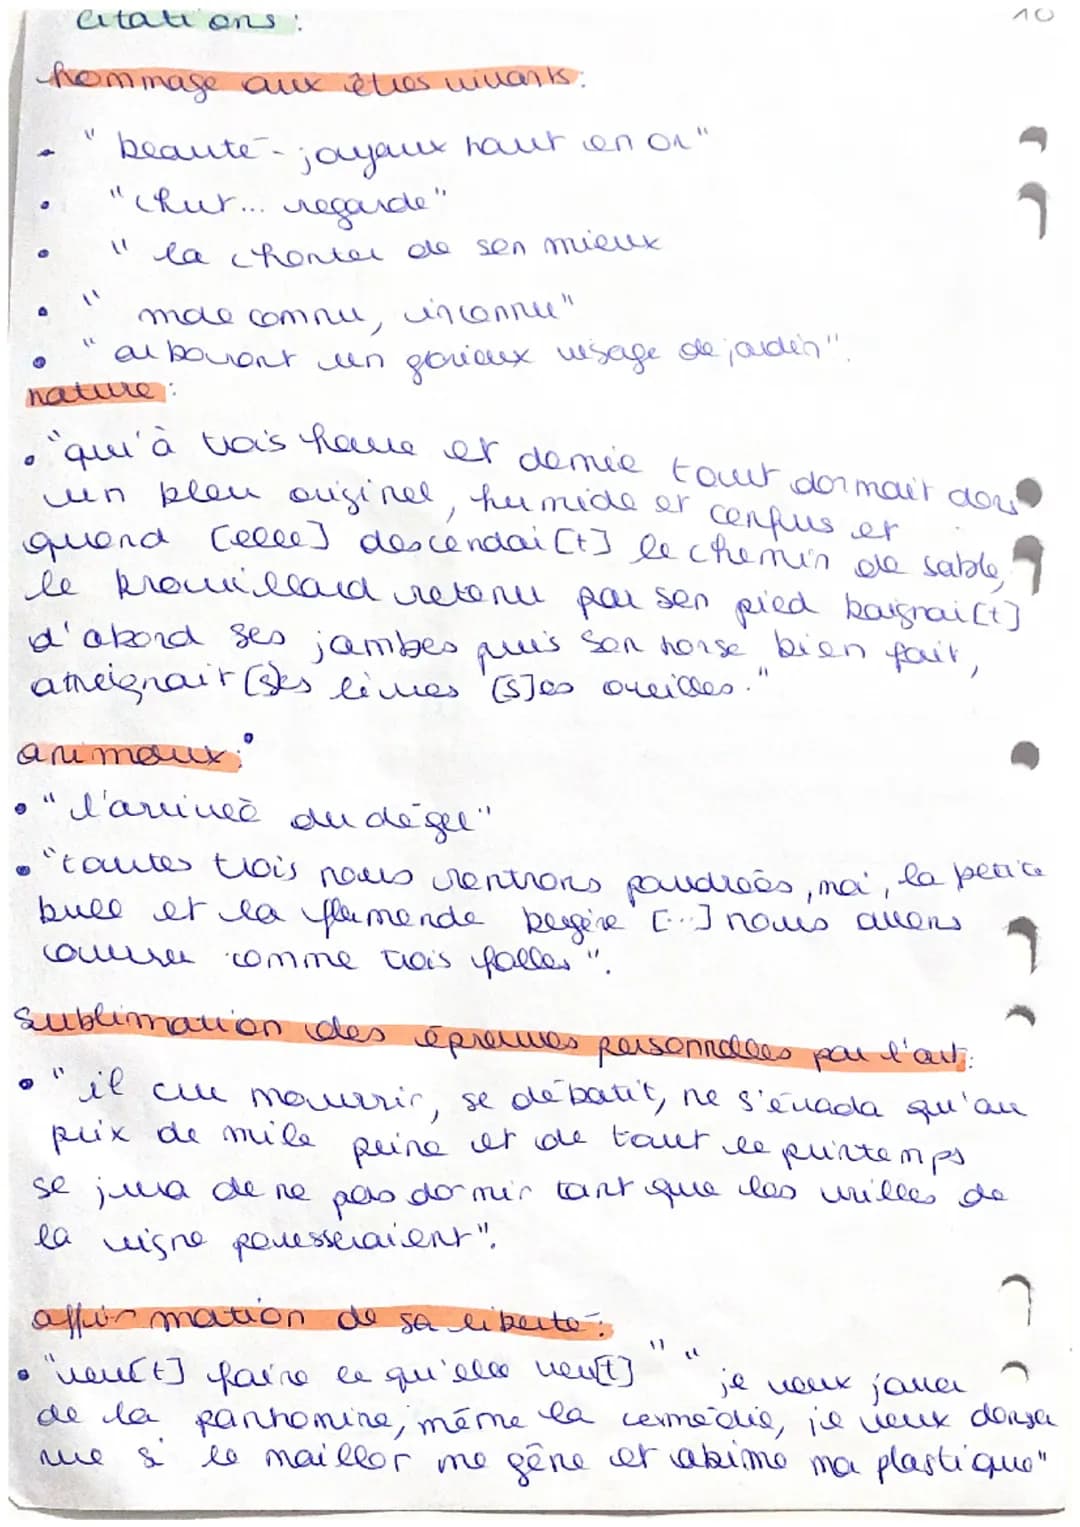 citations :
10
hommage aux êtres vivants :
• "beauté - joyaux haut en or"
• "chut... regarde"
• " la chanter de son mieux
• " mal connu, inconnu"
• " arborant un glorieux visage de jardin".
nature :
• "qu'à trois heure et demie tout dormait dans
un bleu originel, humide et confus et
quand [elle] descendai[t] le chemin de sable,
le brouillard retenu par son pied baignai[t]
d'abord ses jambes puis son torse bien fait,
atteignait [s]es lèvres [s]es oreilles."
animaux :
• "l'arrivée du dégel"
• "toutes trois nous rentrons poudrées, moi, la petite
bull et la flamande bergère [...] nous avons
couru comme trois folles".
sublimation des épreuves personnelles par l'art :
• "il cru mourrir, se débatit, ne s'évada qu'au
prix de mile peine et de tout le printemps
se jura de ne pas dormir tant que les vrilles de
la vigne pousseraient".
affirmation de sa liberté :
• "veu[t] faire ce qu'elle veu[t]" "je veux jouer
de la panthomine, même la comédie, je veux danser
nue si le maillot me gêne et abime ma plastique"